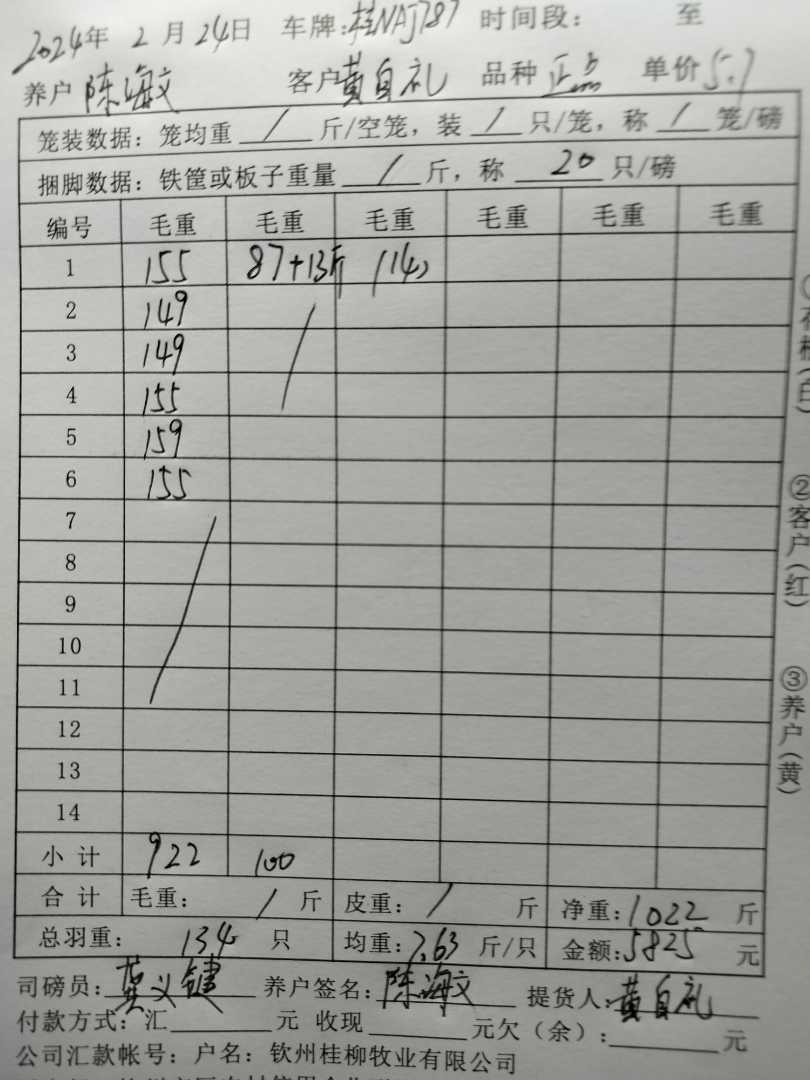 2024年 2 月 24日 车牌:桂NAJ787 时间段: 至
养户 陈海文 客户 黄自礼 品种 正点 单价 5.7
笼装数据：笼均重 / 斤/空笼，装 / 只/笼，称 / 笼/磅
捆脚数据：铁筐或板子重量 / 斤，称 20 只/磅
编号 毛重 毛重 毛重 毛重 毛重 毛重
1 155 87+13斤 (14只)
2 149
3 149
4 155
5 159
6 155
7
8
9
10
11
12
13
14
小 计 922 100
合 计 毛重： / 斤 皮重： / 斤 净重：1022 斤
总羽重： 134 只 均重：7.63 斤/只 金额：5825 元
司磅员： 龚义键 养户签名：陈海文 提货人：黄自礼
付款方式：汇 元 收现 元欠（余）： 元
公司汇款帐号：户名：钦州桂柳牧业有限公司
②客户（红）
③养户（黄）